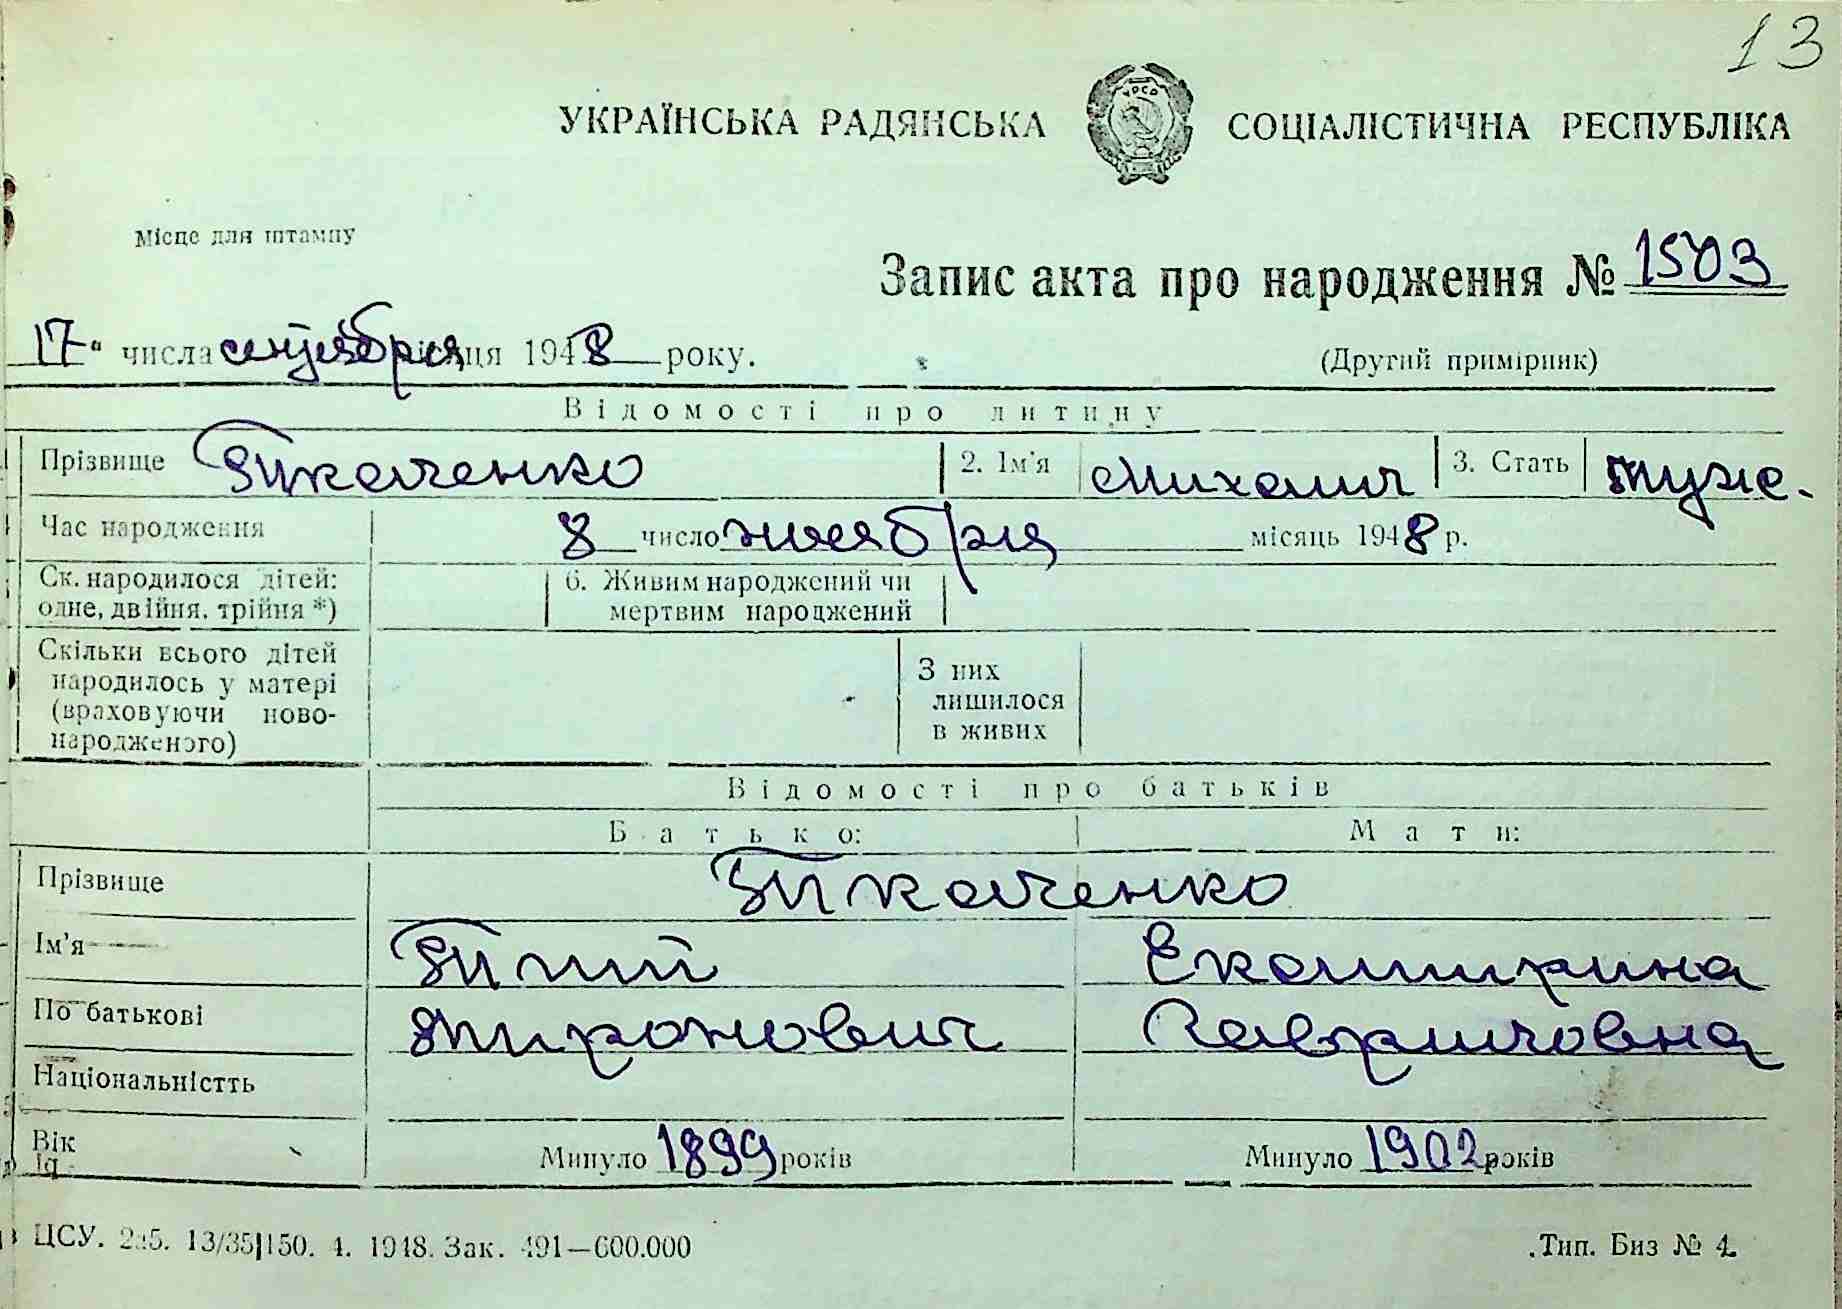 13
УКРАЇНСЬКА РАДЯНСЬКА СОЦІАЛІСТИЧНА РЕСПУБЛІКА
УРСР
Місце для штампу
Запис акта про народження № 1503
17" числа місяця 1948 року.
(Другий примірник)
Відомості про дитину
Прізвище Ткаченко 2. Ім'я Михаил 3. Стать муж.
Час народження 8 число ноября місяць 1948 р.
Ск. народилося дітей: 6. Живим народжений чи
одне, двійня, трійня *) мертвим народжений
Скільки всього дітей З них
народилось у матері лишилося
(враховуючи ново- в живих
народженого)
Відомості про батьків
Батько: Мати:
Прізвище Ткаченко
Ім'я Екатерина
По батькові Миронович Гавриловна
Національністть
Вік Минуло 1899 років Минуло 1902 років
ЦСУ. 13/35|150. 4. 1948. Зак. 491—600.000 Тип. Биз № 4.